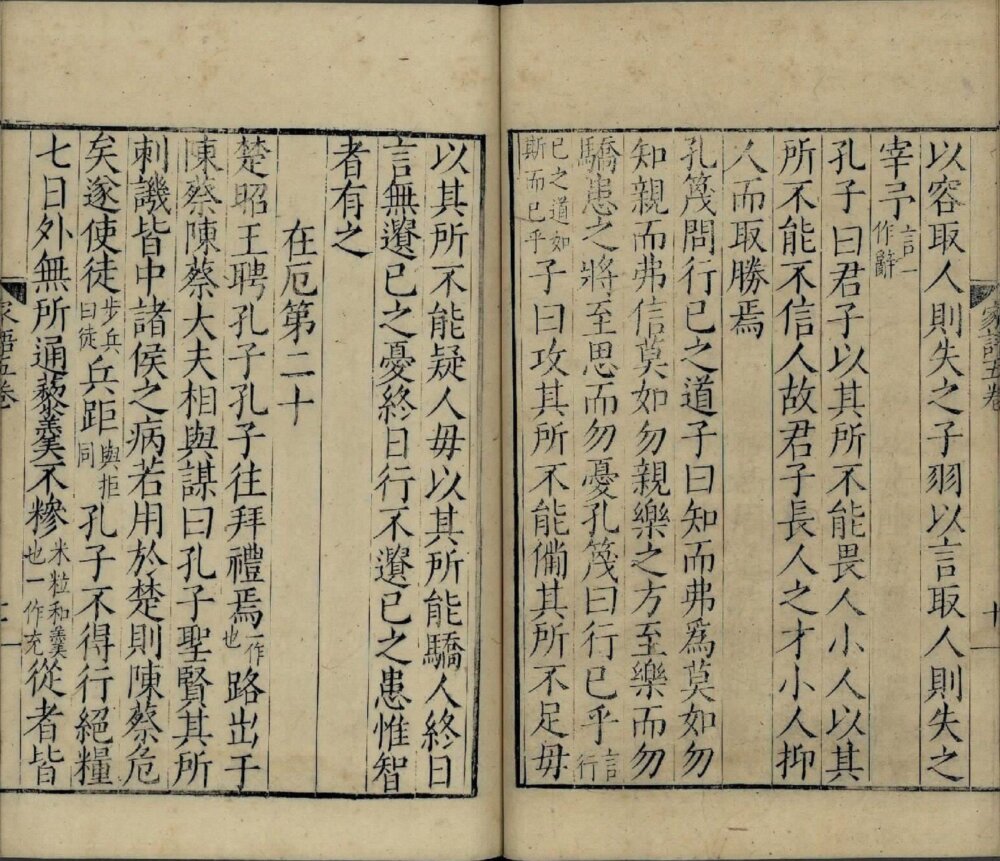 以容取人則失之子羽以言取人則失之
宰予言一作辭
孔子曰君子以其所不能畏人小人以其
所不能不信人故君子長人之才小人抑
人而取勝焉
孔篾問行己之道子曰知而弗爲莫如勿
知親而弗信莫如勿親樂之方至樂而勿
驕患之將至思而勿憂孔篾曰行已乎言行
已之道如斯而已乎子曰攻其所不能備其所不足毋
以其所不能疑人毋以其所能驕人終日
言無遺已之憂終日行不遺已之患惟智
者有之
在厄第二十
楚昭王聘孔子孔子往拜禮焉一作也路出于
陳蔡陳蔡大夫相與謀曰孔子聖賢其所
刺譏皆中諸侯之病若用於楚則陳蔡危
矣遂使徒步兵曰徒兵距與拒同孔子不得行絕糧
七日外無所通藜羹不糝米粒和羹也一作充從者皆
家語五卷
十一